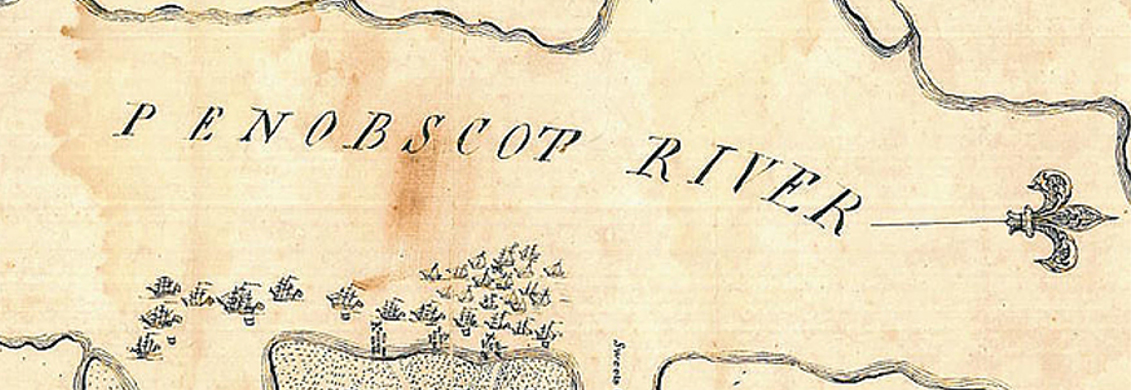 PENOBSCOT RIVER
Sweets